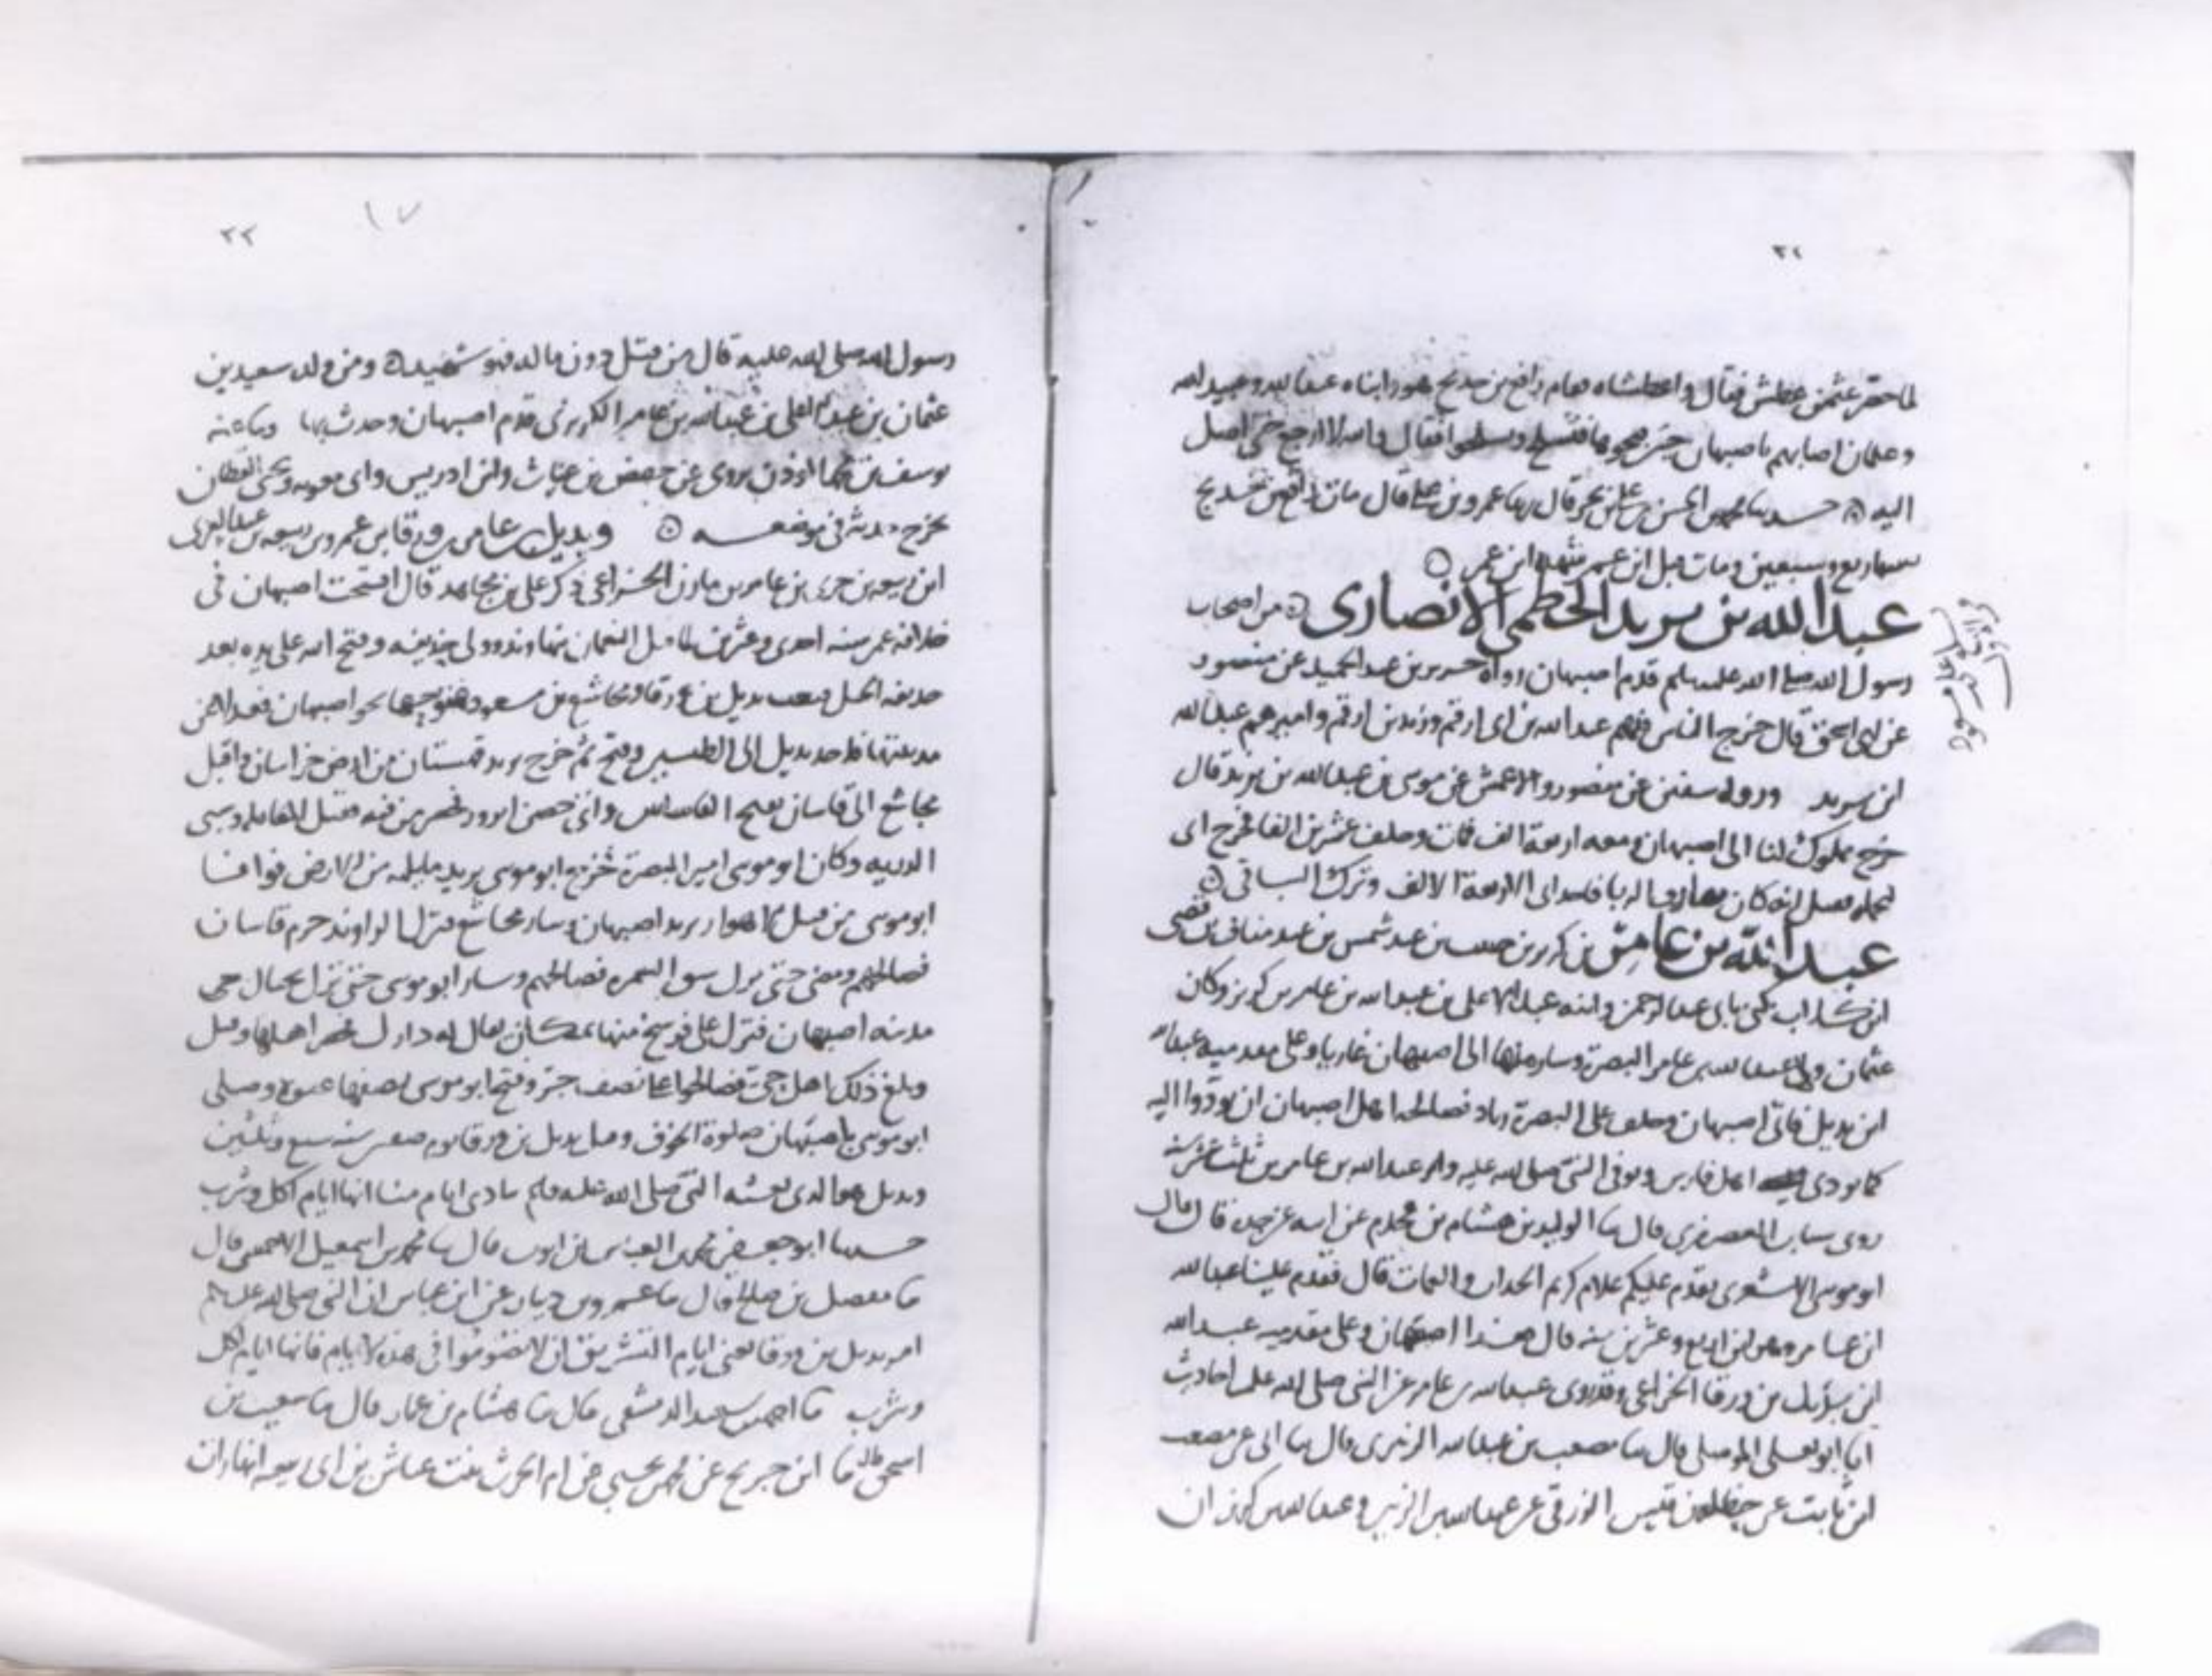 ٢٢
لما حصر عثمن عطش فقال واعطشاه فقام رافع بن خديج هو وابناه عبدالله وعبيدالله
وغلمان اصابهم باصبهان حين فقال والله لا ارجع حتى اصل
اليه علي بن بحر قال عمرو بن علي قال مات رافع بن خديج
سنه اربع وسبعين ومات قبل ابن عمر شهده ابن عمر
عبدالله بن يزيد الخطمي الانصاري من اصحاب
رسول الله صلى الله عليه سلم قدم اصبهان رواه جرير بن عبد الحميد عن منصور
عن ابي اسحق قال خرج الناس وفيهم عبدالله بن ابي ارقم وزيد بن ارقم واميرهم عبدالله
ابن يزيد ورواه سفين عن منصور والاعمش عن موسى بن عبدالله بن يزيد قال
خرج مملوك لنا الى اصبهان ومعه اربعة الف فمات وخلف عشرين الفا فخرج ابي
الاربعة الالاف وترك الباقي
عبدالله بن عامر بن كريز بن حبيب بن عبد شمس بن عبد مناف بن قصي
ابن كلاب يكنى بابي عبدالرحمن وابنه عبدالاعلى بن عبدالله بن عامر بن كريز وكان
عثمان ولى عبدالله بن عامر البصرة وسار منها الى اصبهان غازيا وعلى مقدمته عبدالله
ابن بديل فاتى اصبهان وخلف على البصرة زياد فصالحه اهل اصبهان ان يودوا اليه
كما يودي اهل فارس وتوفي النبي صلى الله عليه ولعبدالله بن عامر بن ثلث عشر سنه
روى شباب العصفري قال ثنا الوليد بن هشام بن قحذم عن ابيه عن جده قال قال
ابو موسى الاشعري يقدم عليكم غلام كريم الجدات والعمات قال فقدم علينا عبدالله
ابن عامر وهو ابن اربع وعشرين سنه قال اصبهان وعلى مقدمته عبدالله
ابن بديل بن ورقا الخزاعي وقد روى عبدالله بن عامر عن النبي صلى الله عليه احاديث
ابو يعلى الموصلي قال ثنا مصعب بن عبدالله الزبيري قال ثنا ابي عن مصعب
ابن ثابت عن حنظلة بن قيس الزرقي عن عبدالله بن الزبير وعبدالله بن كريز ان
٢٢
١٧
رسول الله صلى الله عليه قال من قتل دون ماله فهو شهيد ومن ولده سعيد بن
عثمان بن عبدالاعلى بن عبدالله بن عامر الكريزي قدم اصبهان وحدث بها
يوسف بن يروي عن حفص بن غياث وابن ادريس وابي معويه ويحيى القطان
يخرج حديثه في موضعه وبديل بن ورقا بن عمرو بن ربيعه بن عبدالعزى
ابن ربيعه بن جزي بن عامر بن مازن الخزاعي ذكر علي بن مجاهد قال افتتحت اصبهان في
خلافة عمر سنه احدى وعشرين لما قتل النعمان بنهاوند وولي حذيفه وفتح الله على يده بعث
حذيفه بديل بن ورقا ومجاشع بن مسعود فتوجها نحو اصبهان
مدينتها فاخذ بديل الى الطبسين وفتح ثم خرج يريد قهستان من ارض خراسان واقبل
مجاشع الى قاسان ففتح القاسان واتى حصن ابرود فحصر من فيه فقتل المقاتله وسبى
الذريه وكان ابو موسى امير البصرة فخرج ابو موسى يريد من الارض فوافا
ابو موسى من الاهواز يريد اصبهان وسار مجاشع فنزل الراوند حرم قاسان
فصالحهم ومضى حتى نزل فصالحهم وسار ابو موسى حتى نزل بحيال جي
مدينه اصبهان فنزل على فرسخ منها بمكان يقال له دارك فحصر اهلها
وبلغ ذلك اهل جي فصالحوا على نصف جي وفتح ابو موسى نصفها عنوة وصلى
ابو موسى باصبهان صلوة الخوف وقتل بديل بن ورقا يوم صفين سنه سبع وثلثين
وبديل هو الذي بعثه النبي صلى الله عليه وسلم ينادي ايام منا انها ايام اكل وشرب
حدثنا ابو جعفر محمد بن العباس بن ايوب قال ثنا محمد بن اسمعيل الاحمسي قال
ثنا مفضل بن صالح قال ثنا عمرو بن دينار عن ابن عباس ان النبي صلى الله عليه وسلم
امر بديل بن ورقا يعني ايام التشريق ان لا تصوموا في هذه الايام فانها ايام اكل
وشرب ثنا احمد بن سعيد الدمشقي قال ثنا هشام بن عمار قال ثنا شعيب بن
اسحق قال ثنا ابن جريج عن محمد بن يحيى عن ام الحرث بنت عياش بن ابي ربيعه انها رات